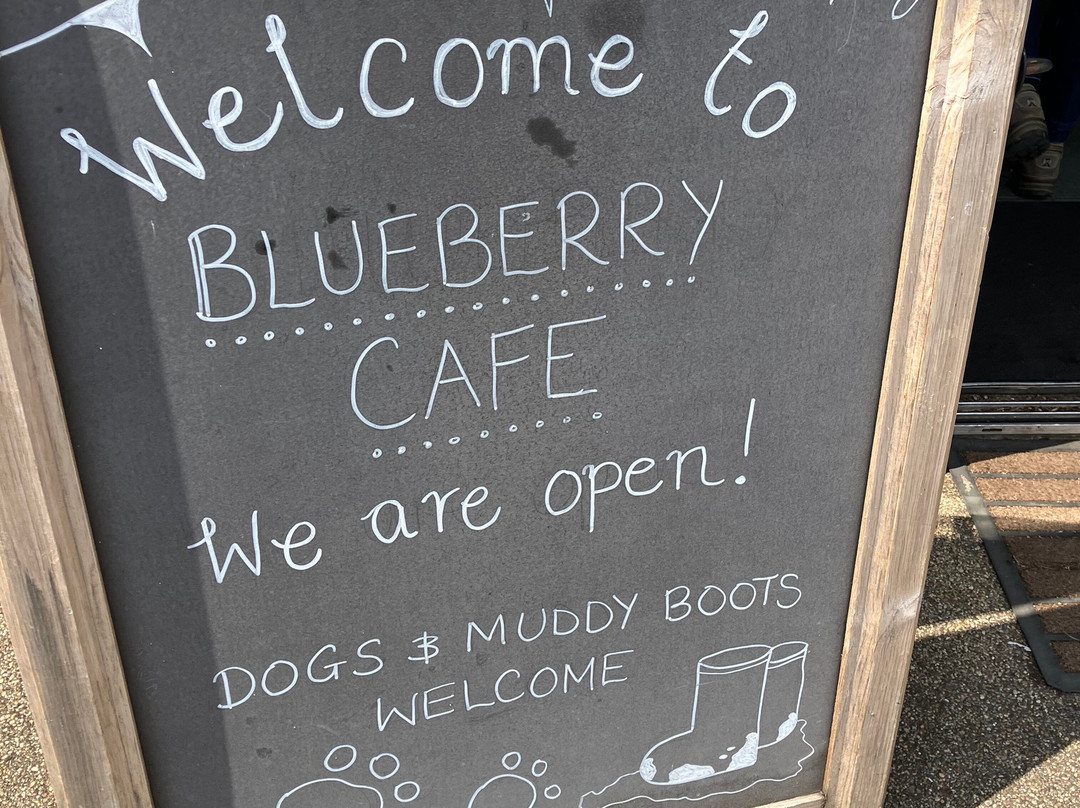 Welcome to
BLUEBERRY
CAFE
We are open!
DOGS & MUDDY BOOTS
WELCOME